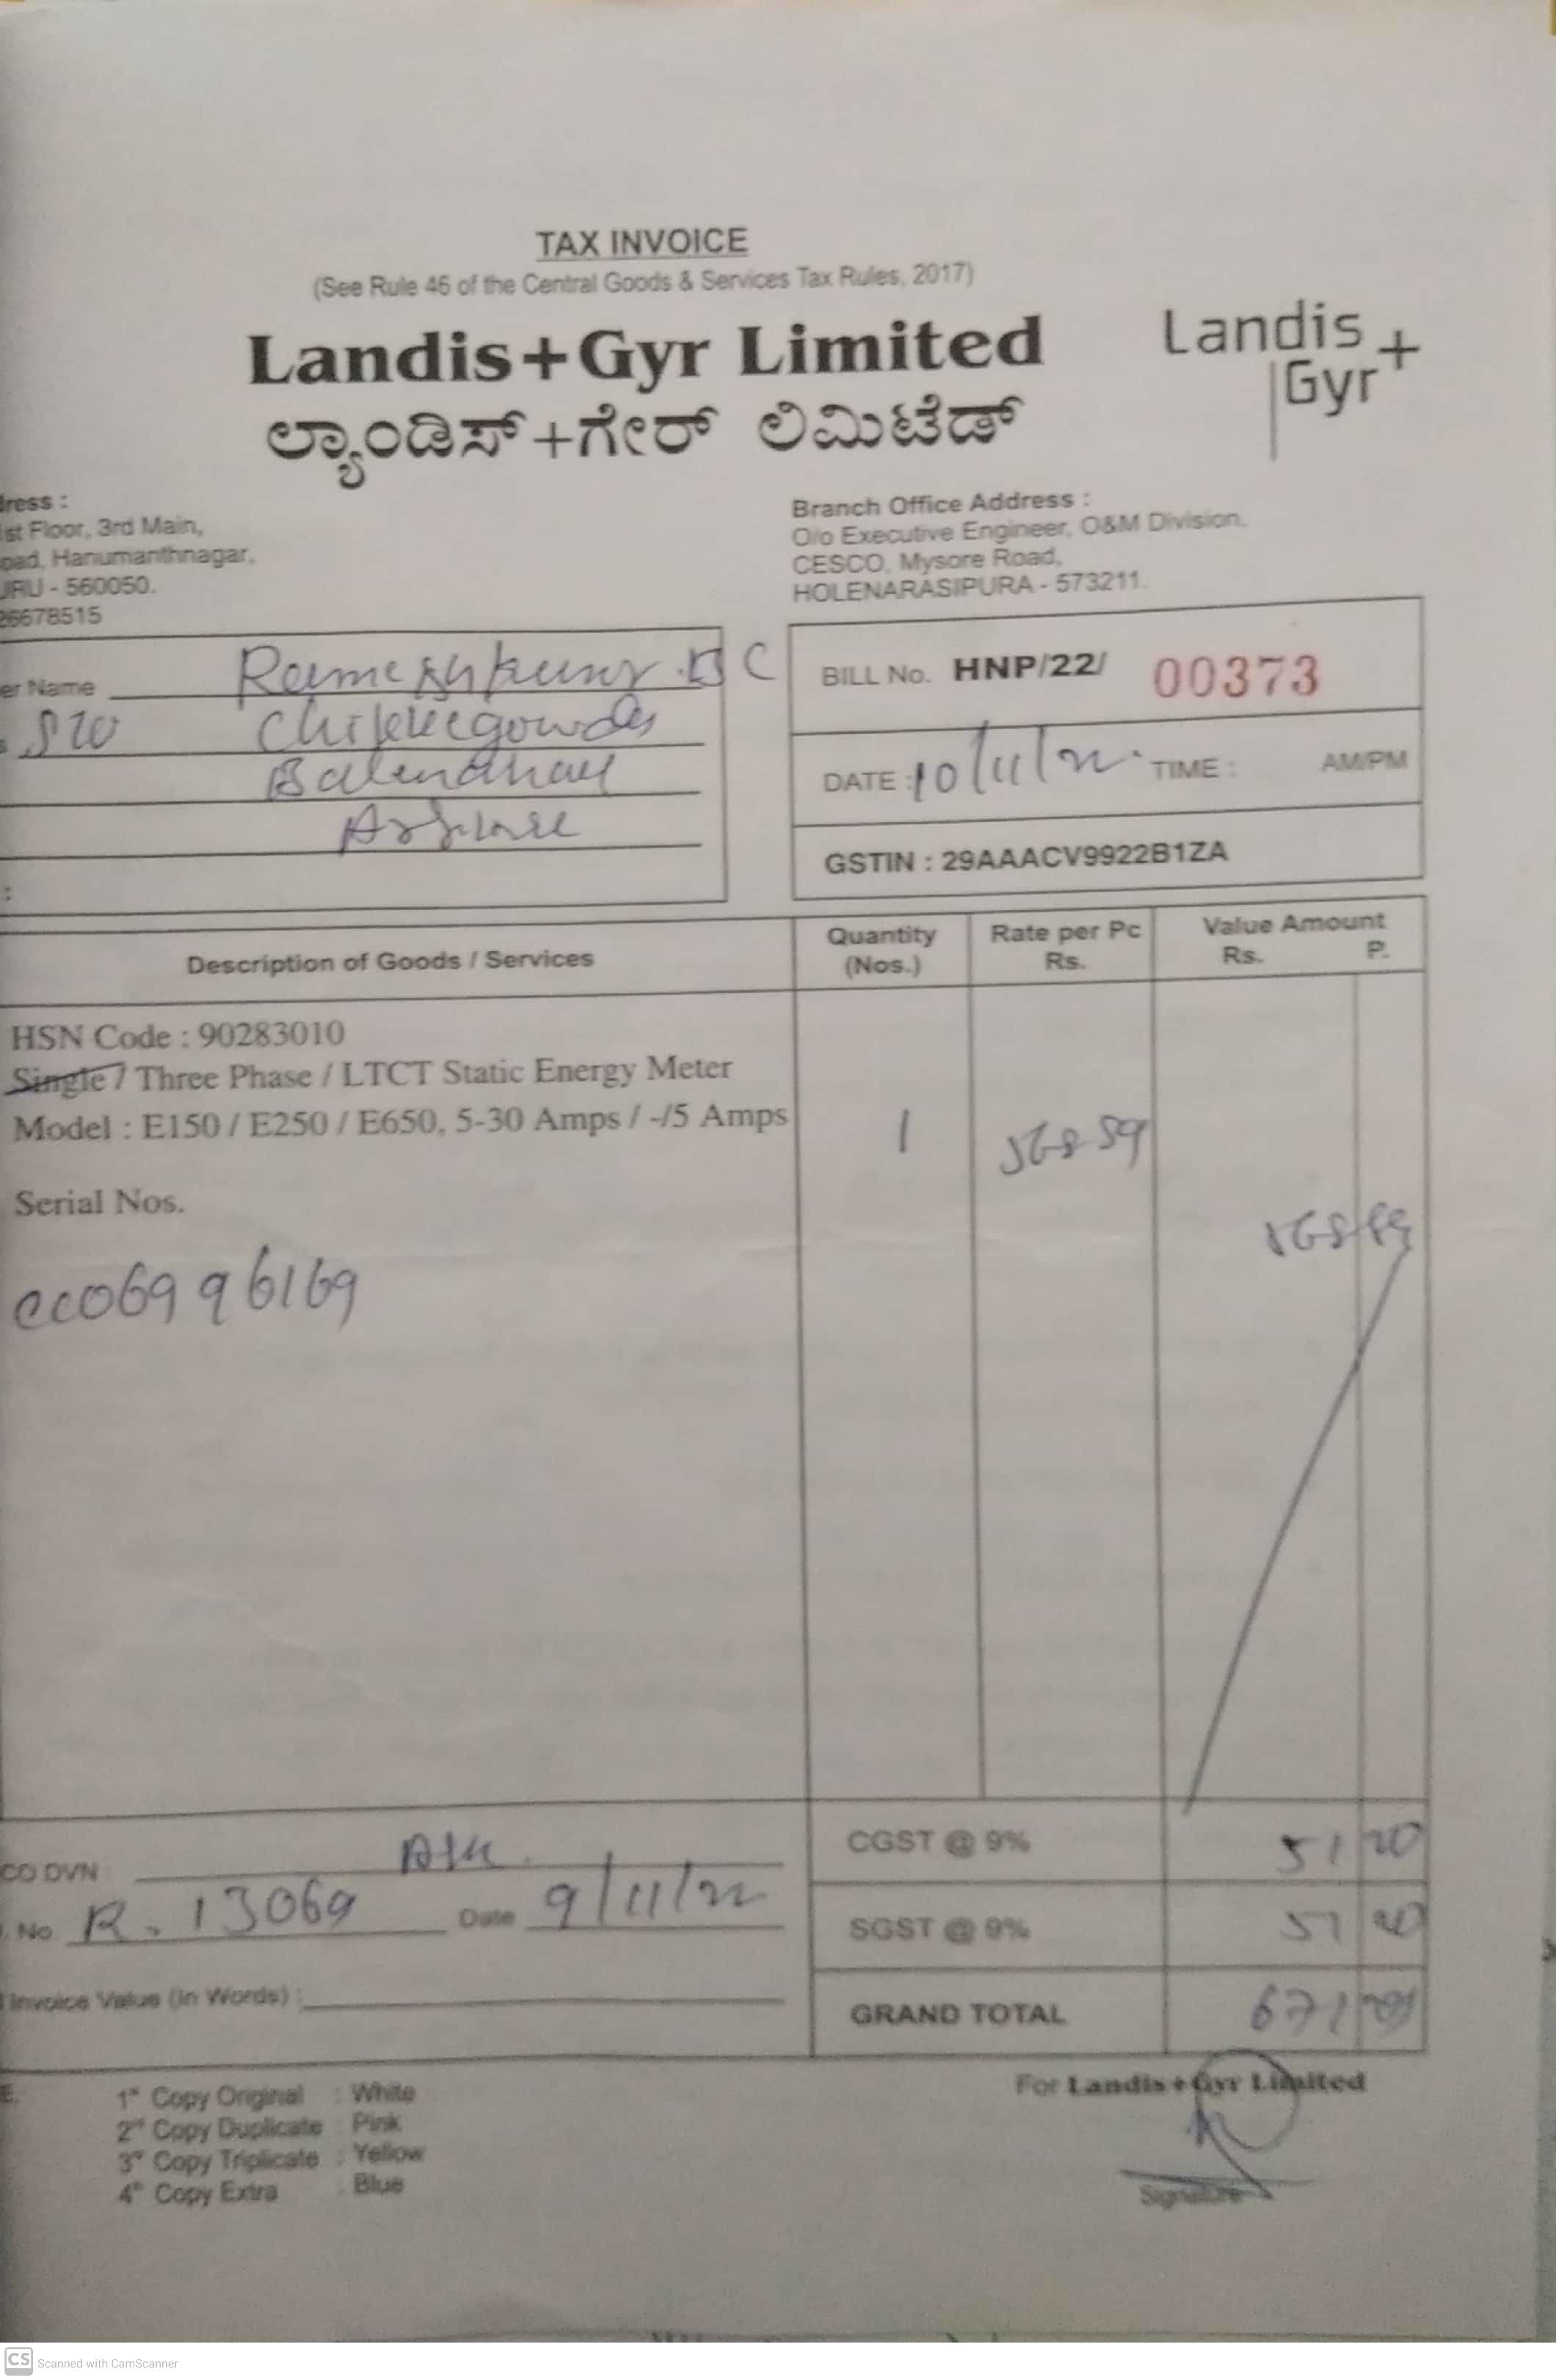 TAX INVOICE
(See Rule 46 of the Central Goods & Services Tax Rules, 2017)
Landis+Gyr Limited
ಲ್ಯಾಂಡಿಸ್+ಗೇರ್ ಲಿಮಿಟೆಡ್
Landis
Gyr+
dress :
1st Floor, 3rd Main,
oad, Hanumanthnagar,
URU - 560050.
26678515
Branch Office Address :
O/o Executive Engineer, O&M Division,
CESCO, Mysore Road,
HOLENARASIPURA - 573211.
er Name Rameshkumar B C
S/O Chikkegowda
BILL No. HNP/22/ 00373
DATE : 10/11/22 TIME : AM/PM
GSTIN : 29AAACV9922B1ZA
Description of Goods / Services
Quantity (Nos.)
Rate per Pc Rs.
Value Amount Rs. P.
HSN Code : 90283010
Single / Three Phase / LTCT Static Energy Meter
Model : E150 / E250 / E650, 5-30 Amps / -/5 Amps
1 568 89
Serial Nos.
568 89
CC06996169
CO DVN
CGST @ 9% 51 20
. No R. 13069 Date 9/11/22
SGST @ 9% 51 20
Invoice Value (In Words) :
GRAND TOTAL 671
E.
1st Copy Original : White
2nd Copy Duplicate : Pink
3rd Copy Triplicate : Yellow
4th Copy Extra : Blue
For Landis+Gyr Limited
Signature
CS Scanned with CamScanner